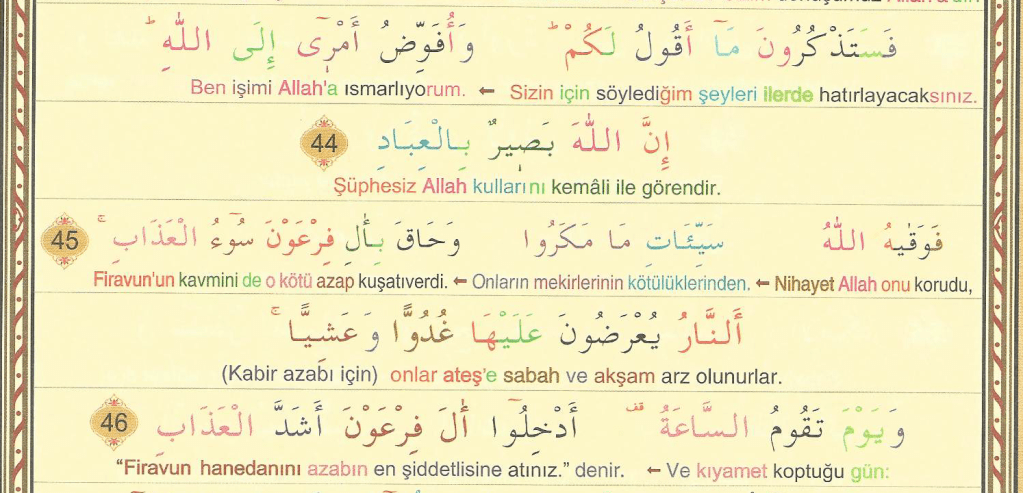 فَسَتَذْكُرُونَ مَٓا أَقُولُ لَكُمْۜ وَأُفَوِّضُ أَمْرِٓى إِلَى اللّٰهِۜ
Ben işimi Allah'a ısmarlıyorum. ← Sizin için söylediğim şeyleri ilerde hatırlayacaksınız.
إِنَّ اللّٰهَ بَصِيرٌ بِالْعِبَادِ 44
Şüphesiz Allah kullarını kemâli ile görendir.
فَوَقٰيهُ اللّٰهُ سَيِّـَٔاتِ مَا مَكَرُوا وَحَاقَ بِـَٔالِ فِرْعَوْنَ سُٓوءُ الْعَذَابِۚ 45
Firavun'un kavmini de o kötü azap kuşatıverdi. ← Onların mekirlerinin kötülüklerinden. ← Nihayet Allah onu korudu,
أَلنَّارُ يُعْرَضُونَ عَلَيْهَا غُدُوًّا وَعَشِيًّاۚ
(Kabir azabı için) onlar ateş'e sabah ve akşam arz olunurlar.
وَيَوْمَ تَقُومُ السَّاعَةُ قف أَدْخِلُٓوا أٰلَ فِرْعَوْنَ أَشَدَّ الْعَذَابِ 46
“Firavun hanedanını azabın en şiddetlisine atınız.” denir. ← Ve kıyamet koptuğu gün: